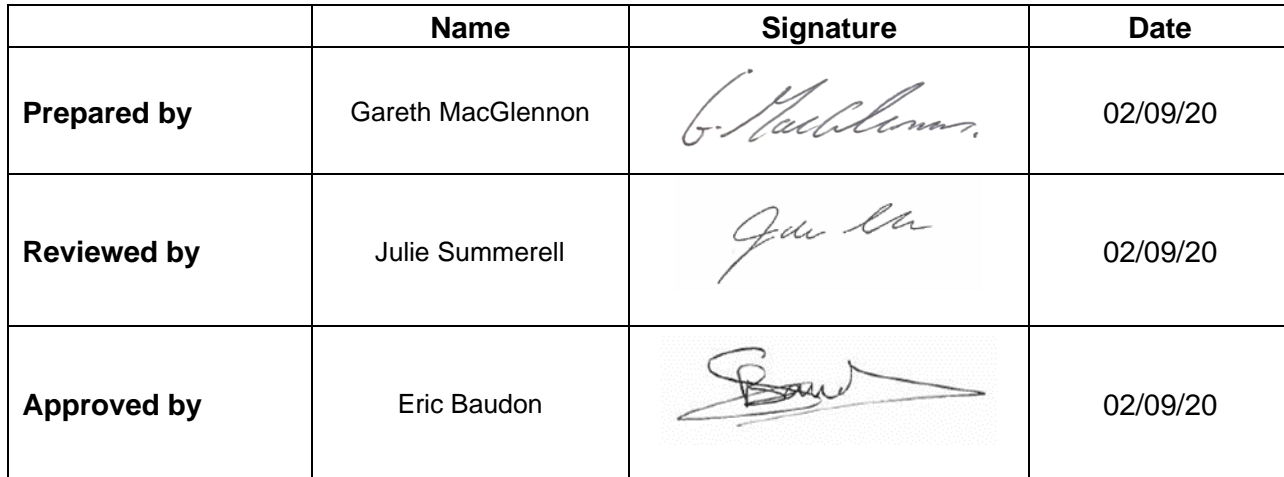 Name Signature Date
Prepared by Gareth MacGlennon G. MacGlennon. 02/09/20
Reviewed by Julie Summerell 02/09/20
Approved by Eric Baudon EBaud 02/09/20